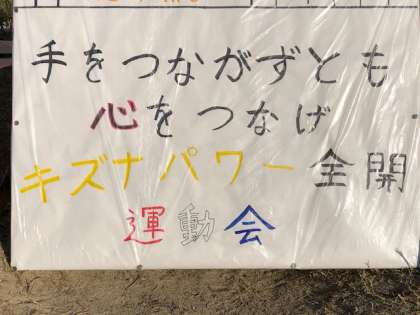 手をつながずとも
心をつなげ
キズナパワー全開
運動会